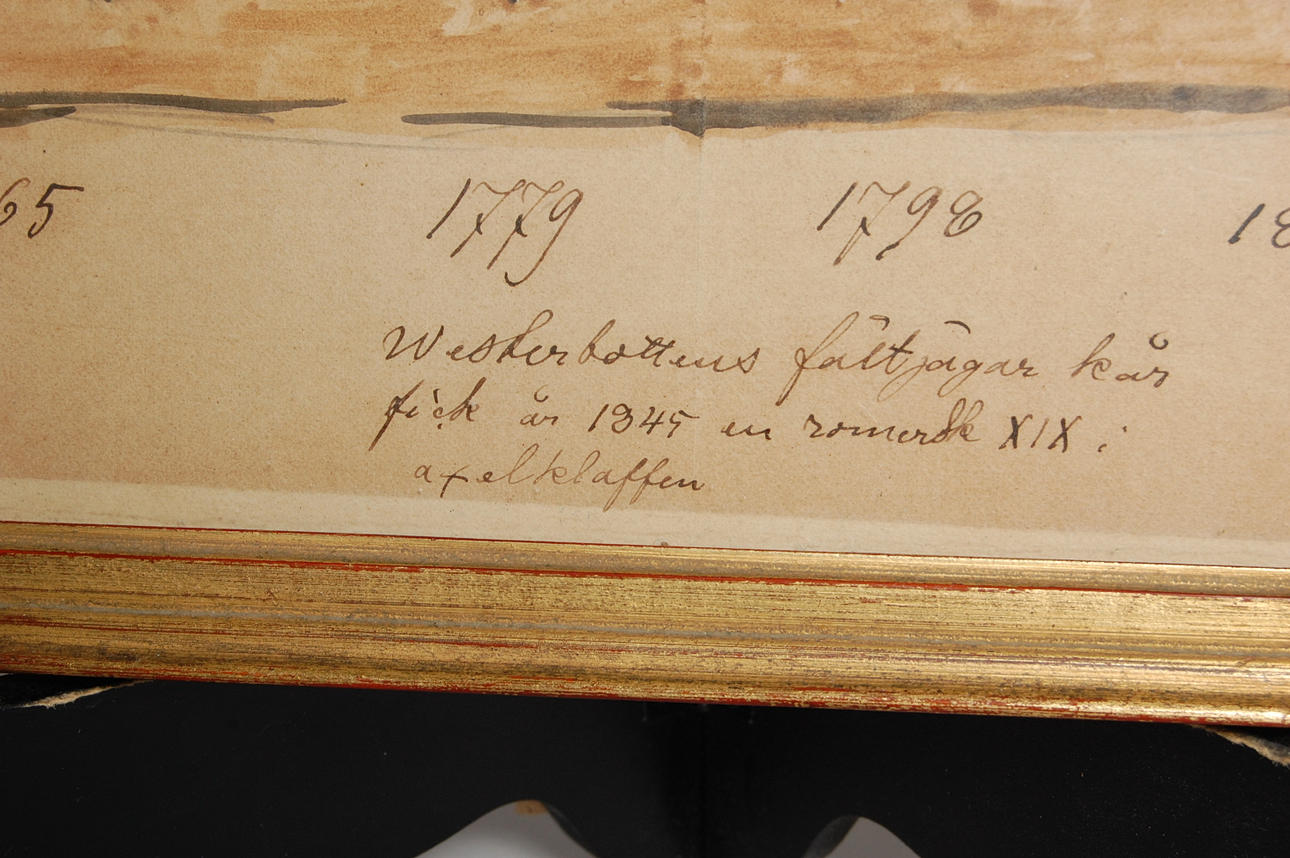 65 1779 1798 18
Westerbottens fältjägar kår
fick år 1845 en romersk XIX i
axelklaffen